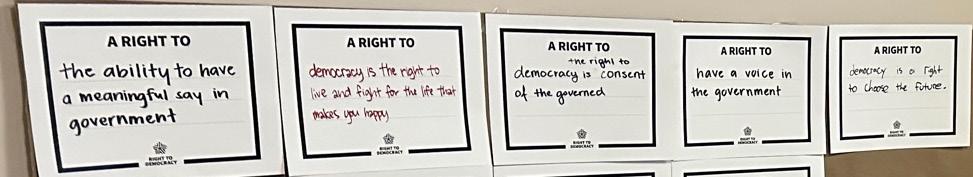 A RIGHT TO
the ability to have
a meaningful say in
government
RIGHT TO
DEMOCRACY
A RIGHT TO
democracy is the right to
live and fight for the life that
makes you happy
RIGHT TO
DEMOCRACY
A RIGHT TO
the right to
democracy is consent
of the governed
RIGHT TO
DEMOCRACY
A RIGHT TO
have a voice in
the government
RIGHT TO
DEMOCRACY
A RIGHT TO
democracy is a right
to choose the future.
RIGHT TO
DEMOCRACY